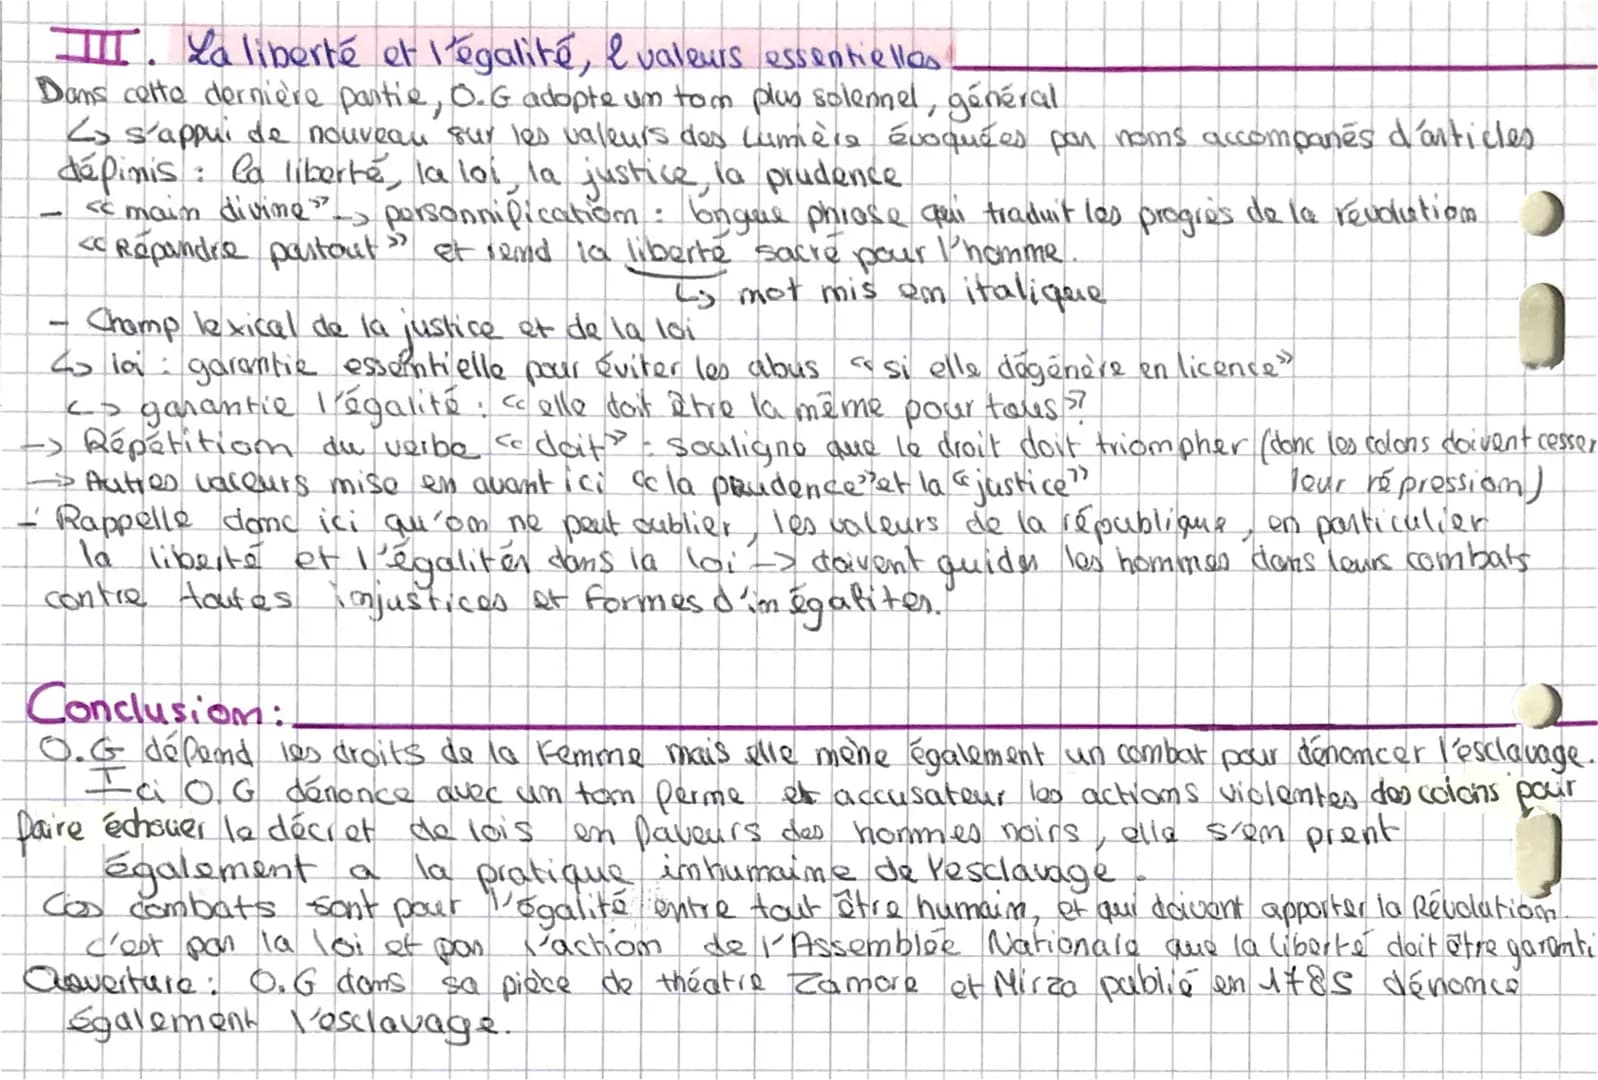 III. La liberté et l'égalité, 2 valeurs essentielles
Dans cette dernière partie, O.G adopte un ton plus solennel, général
↳ s'appui de nouveau sur les valeurs des Lumière évoquées par noms accompanés d'articles
définis : la liberté, la loi, la justice, la prudence
- « main divine » → personnification : longue phrase qui traduit les progrès de la révolution
« Répandre partout » et rend la liberté sacré pour l'homme.
↳ mot mis en italique
- Champ lexical de la justice et de la loi
↳ loi : garantie essentielle pour éviter les abus « si elle dégénère en licence »
↳ garantie l'égalité : « elle doit être la même pour tous »
→ Répétition du verbe « doit » = souligne que le droit doit triompher (donc les colons doivent cesser
leur répression)
→ Autres valeurs mise en avant ici « la prudence » et la « justice »
- Rappelle donc ici qu'on ne peut oublier, les valeurs de la république, en particulier
la liberté et l'égalités dans la loi → doivent guider les hommes dans leurs combats
contre toutes injustices et formes d'inégalités.
Conclusion :
O.G défend les droits de la Femme mais elle mène également un combat pour dénoncer l'esclavage.
Ici O.G dénonce avec un ton ferme et accusateur les actions violentes des colons pour
faire échouer le décret de lois en faveurs des hommes noirs, elle s'en prent
également a la pratique inhumaine de l'esclavage.
Ces combats sont pour l'égalité entre tout être humain, et qui doivent apporter la Révolution.
c'est par la loi et par l'action de l'Assemblée Nationale que la liberté doit être garanti
Ouverture : O.G dans sa pièce de théatre Zamore et Mirza publié en 1785 dénonce
également l'esclavage.